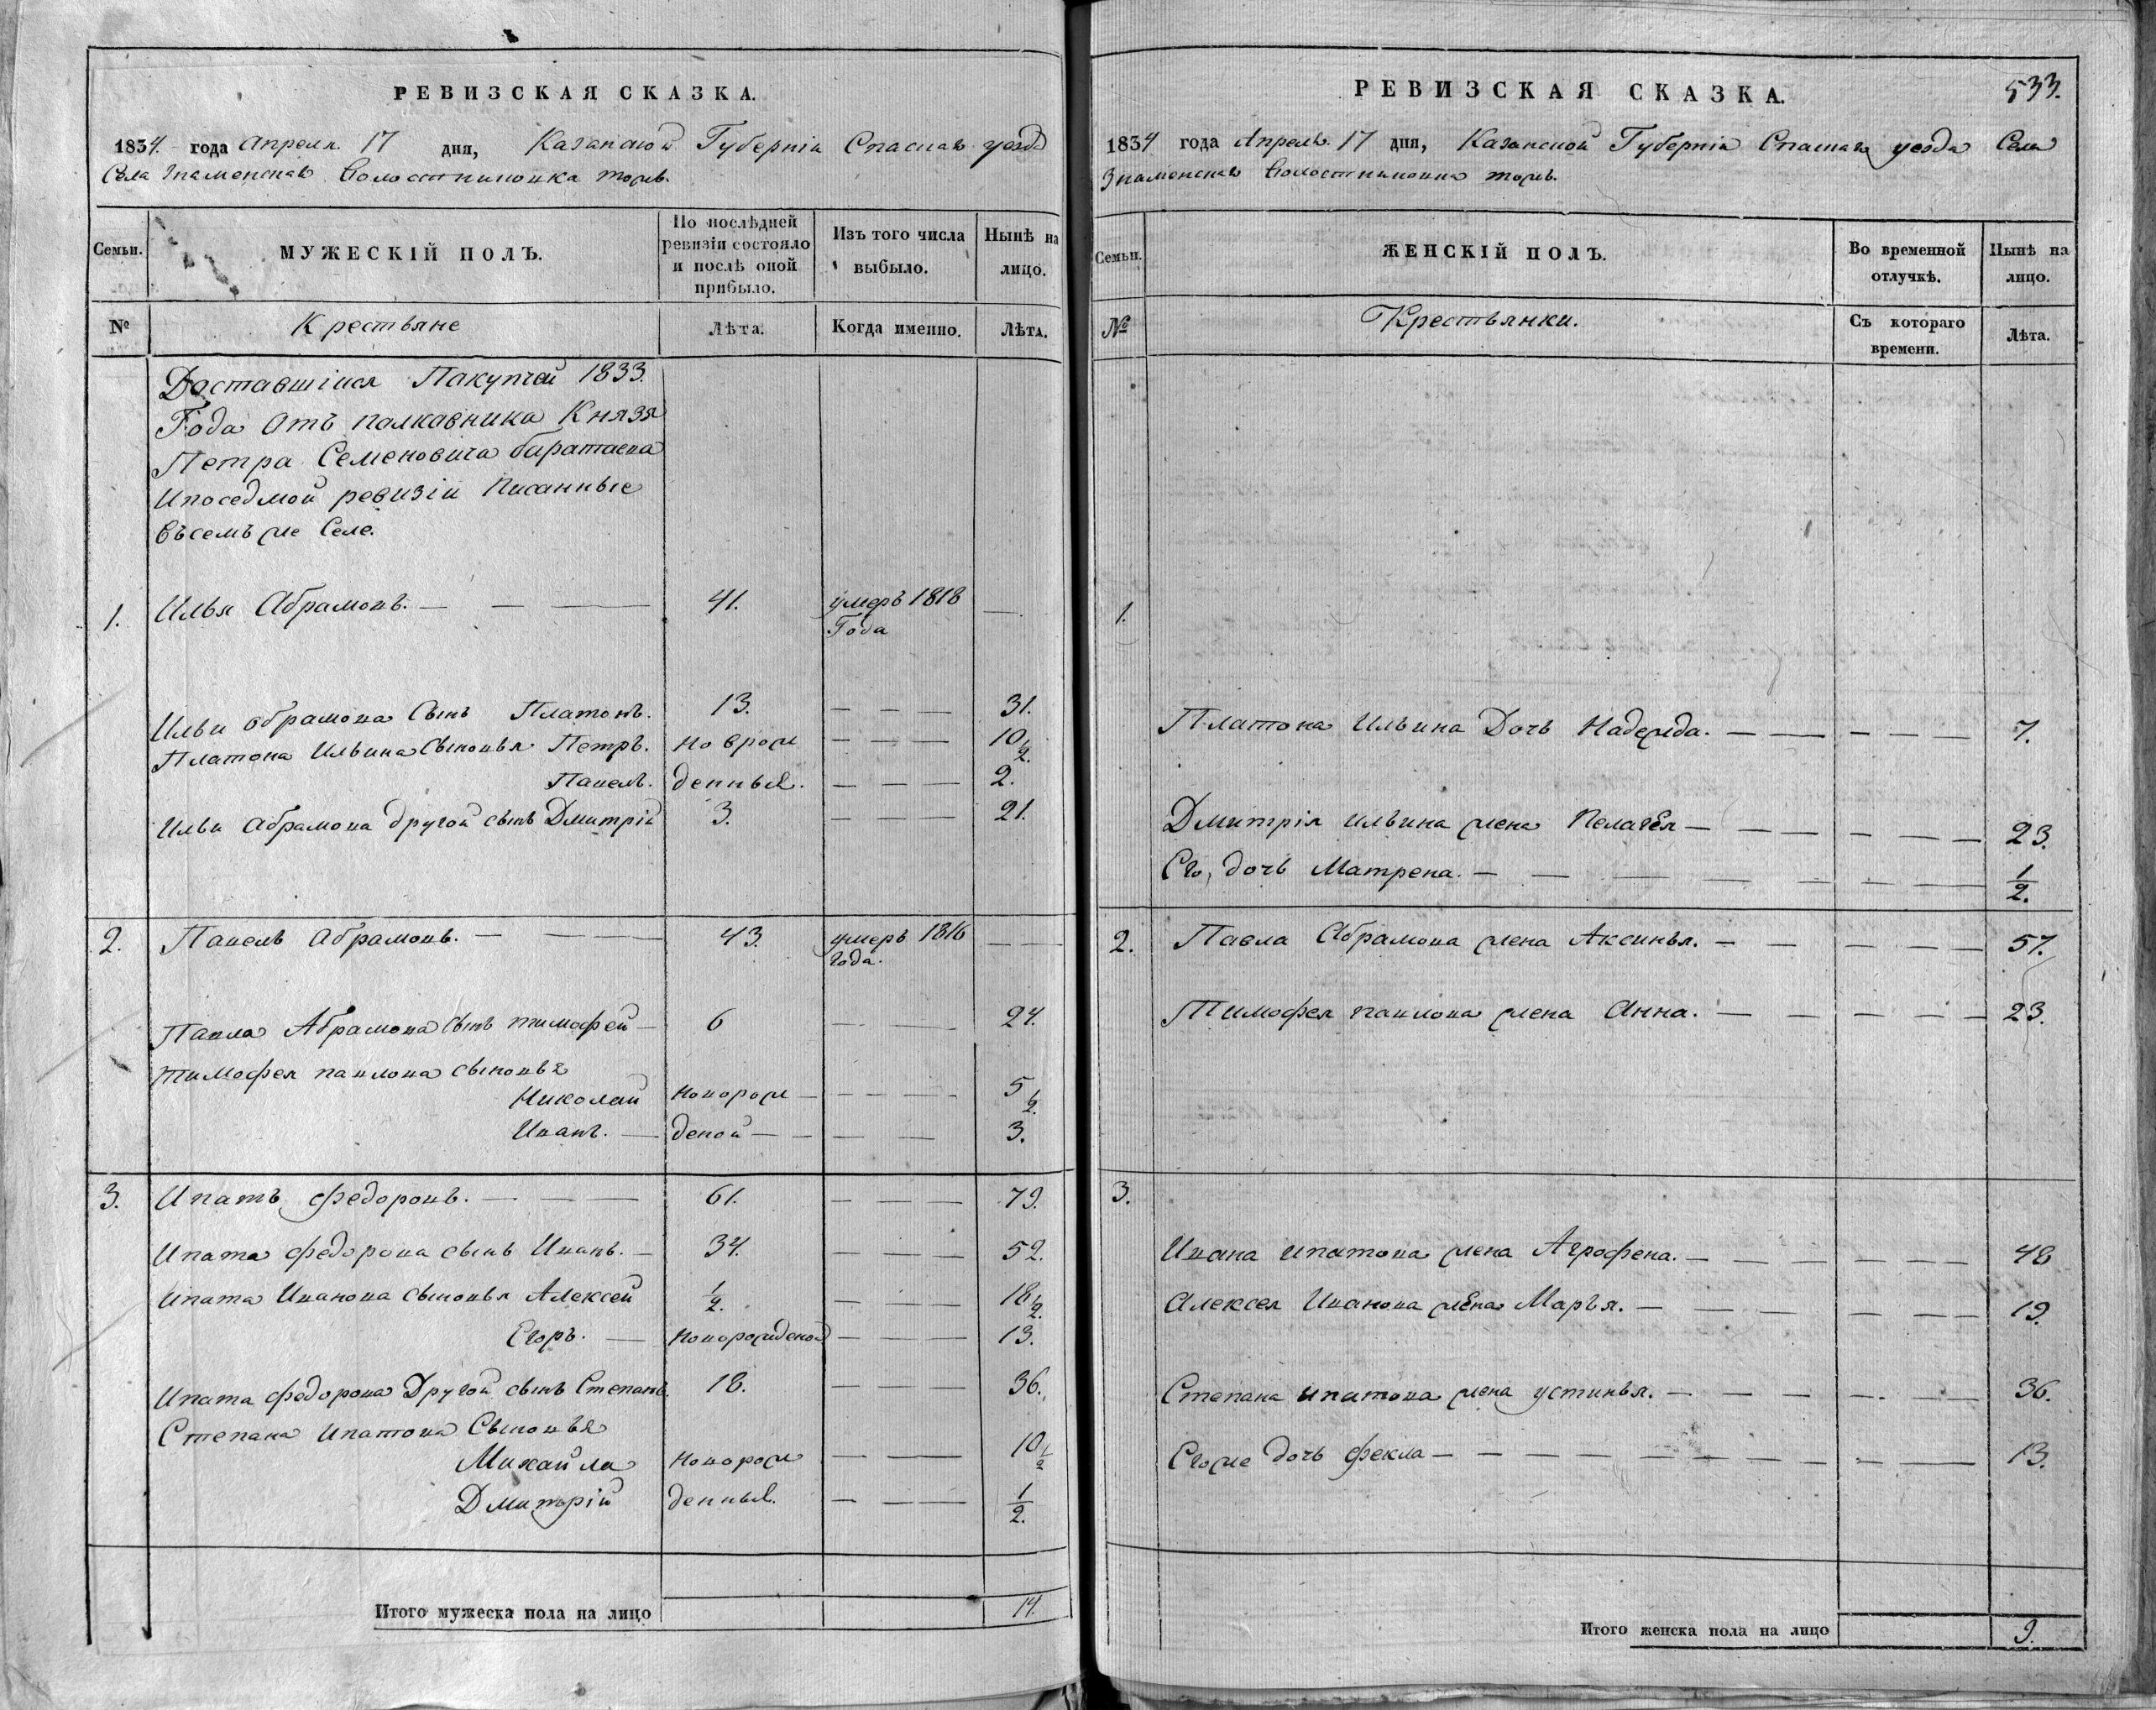 РЕВИЗСКАЯ СКАЗКА.
1834. года Апреля. 17 дня, Казанской Губерніи Спаскаго уезда
Села Знаменскаго тожъ.
Семьи. МУЖЕСКІЙ ПОЛЪ. По послѣдней ревизіи состояло и послѣ оной прибыло. Изъ того числа выбыло. Нынѣ на лицо.
№ Крестьяне Лѣта. Когда именно. Лѣта.
Доставшіися Пакупчей 1833.
Года Отъ палкавника Князя
Петра Семеновича баратаева
Ипоседмой ревизіи Писанные
Въсемъ же Селе.
1. Илья Абрамовъ. — — — 41. умеръ 1818 Года —
Ильи абрамова Сынъ Платонъ. 13. — — — 31.
Платона Ильина Сыновья Петръ. Новрож — — — 10 1/2.
Павелъ. денныя. — — — 2.
Ильи абрамова другой сынъ Дмитрій 3. — — — 21.
2. Павелъ абрамовъ. — — — 43. умеръ 1816 года. — —
Павла Абрамова сынъ тимофей — 6 — — 24.
тимофея павлова сыновья
Николай новорож — — — — 5 1/2.
Иванъ. — деной — — — — 3.
3. Ипатъ федоровъ. — — — 61. — — — 79.
Ипата федорова сынъ Иванъ. — 34. — — — 52.
Ипата Иванова сыновья Алексей 1/2. — — — 18 1/2.
Егоръ. — новорожденой — — — 13.
Ипата федорова Другой сынъ Степанъ 18. — — — 36.
Степана ипатова Сыновья
Михайла новорож — — — 10 1/2
Дмитрій денныя. — — — 1/2.
Итого мужеска пола на лицо 14.
РЕВИЗСКАЯ СКАЗКА. 533.
1834 года Апреля. 17 дня, Казанской Губерніи Спаскаго уезда Села
Знаменскаго тожъ.
Семьи. ЖЕНСКІЙ ПОЛЪ. Во временной отлучкѣ. Нынѣ на лицо.
№ Крестьянки. Съ котораго времени. Лѣта.
1.
Платона Ильина Дочь Надежда. — — — — — 7.
Дмитрія ильина жена Пелагея — — — — — — 23.
Его, дочь Матрена. — — — — — — — 1/2.
2. Павла Абрамова жена Аксинья. — — — — — 57.
Тимофея павлова жена Анна. — — — — — 23.
3.
Ивана ипатова жена Агрофена. — — — — — — — 48
Алексея Иванова жена Марья. — — — — — — — 19.
Степана ипатова жена устинья. — — — — — — 36.
Егоже дочь фекла — — — — — — — — — 13.
Итого женска пола на лицо 9.